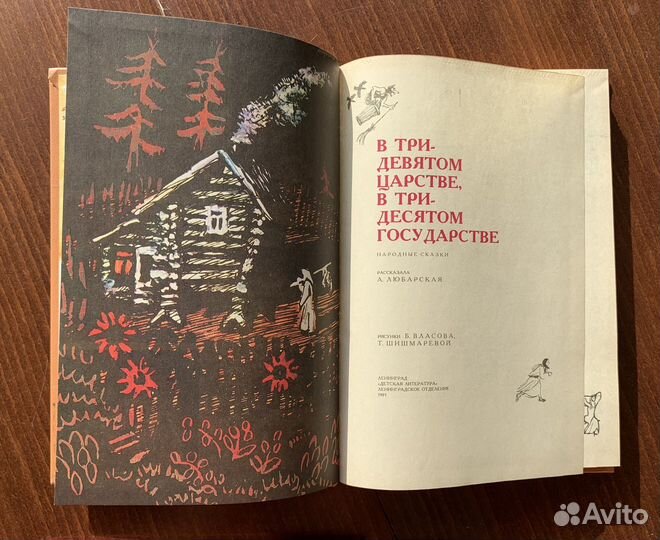 В ТРИ-
ДЕВЯТОМ
ЦАРСТВЕ,
В ТРИ-
ДЕСЯТОМ
ГОСУДАРСТВЕ
НАРОДНЫЕ СКАЗКИ
РАССКАЗАЛА
А. ЛЮБАРСКАЯ
РИСУНКИ Б. ВЛАСОВА,
Т. ШИШМАРЕВОЙ
ЛЕНИНГРАД
«ДЕТСКАЯ ЛИТЕРАТУРА»
ЛЕНИНГРАДСКОЕ ОТДЕЛЕНИЕ
Avito